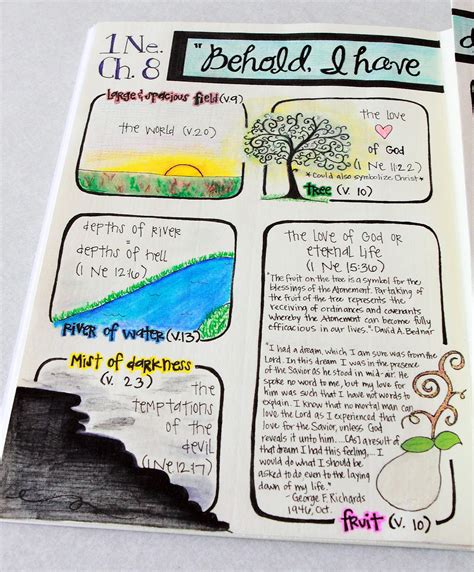 1 Ne.
Ch. 8
"Behold, I have
large & spacious field (v.9)
the world (v.20)
the love
of God
(1 Ne 11:22)
*Could also symbolize Christ*
tree (v. 10)
depths of river
=
depths of hell
(1 Ne 12:16)
River of water (v.13)
Mist of darkness
(v. 23)
the
temptations
of the
devil
(1 Ne 12:17)
the love of God or
eternal life
(1 Ne 15:36)
"The fruit on the tree is a symbol for the
blessings of the Atonement. Partaking of
the fruit of the tree represents the
receiving of ordinances and covenants
whereby the Atonement can become fully
efficacious in our lives." -David A. Bednar
"I had a dream, which I am sure was from the
Lord. In this dream I was in the presence
of the Savior as he stood in mid-air. He
spoke no word to me, but my love for
him was such that I have not words to
explain. I know that no mortal man can
love the Lord as I experienced that
love for the Savior, unless God
reveals it unto him.... [As] a result of
that dream I had this feeling,... I
would do what I should be
asked to do even to the laying
down of my life."
- George F. Richards
1946, Oct.
fruit (v. 10)